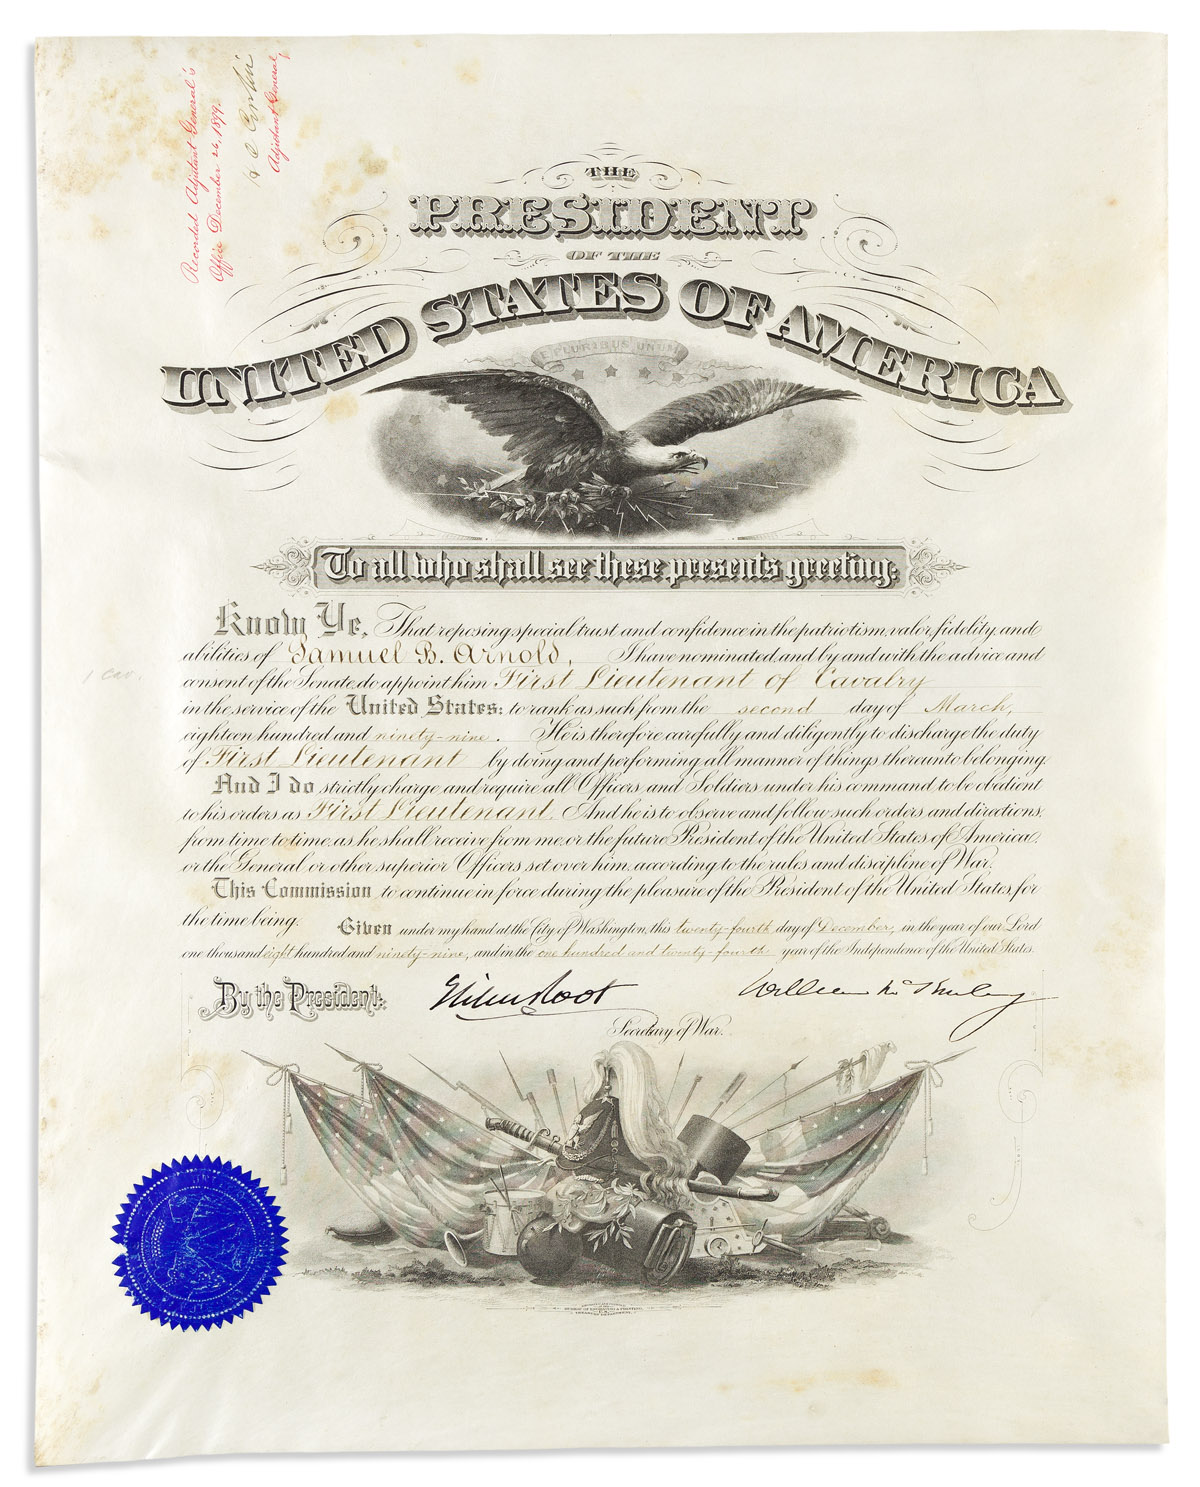 Recorded Adjutant General's
Office December 26, 1899.
H C Corbin
Adjutant General,
THE
PRESIDENT
OF THE
UNITED STATES OF AMERICA
E PLURIBUS UNUM
To all who shall see these presents greeting:
Know Ye, That reposing special trust and confidence in the patriotism, valor, fidelity, and
abilities of Samuel B. Arnold, I have nominated, and by and with the advice and
1 Cav.
consent of the Senate, do appoint him First Lieutenant of Cavalry
in the service of the United States: to rank as such from the second day of March,
eighteen hundred and ninety-nine. He is therefore carefully and diligently to discharge the duty
of First Lieutenant by doing and performing all manner of things thereunto belonging.
And I do strictly charge, and require all Officers and Soldiers under his command to be obedient
to his orders as First Lieutenant. And he is to observe and follow such orders and directions,
from time to time, as he shall receive from me, or the future President of the United States of America,
or the General or other superior Officers set over him, according to the rules and discipline of War.
This Commission to continue in force during the pleasure of the President of the United States, for
the time being. Given under my hand at the City of Washington, this twenty-fourth day of December, in the year of our Lord
one thousand eight hundred and ninety-nine, and in the one hundred and twenty-fourth year of the Independence of the United States.
By the President: Elihu Root William McKinley
Secretary of War.
BUREAU OF ENGRAVING & PRINTING